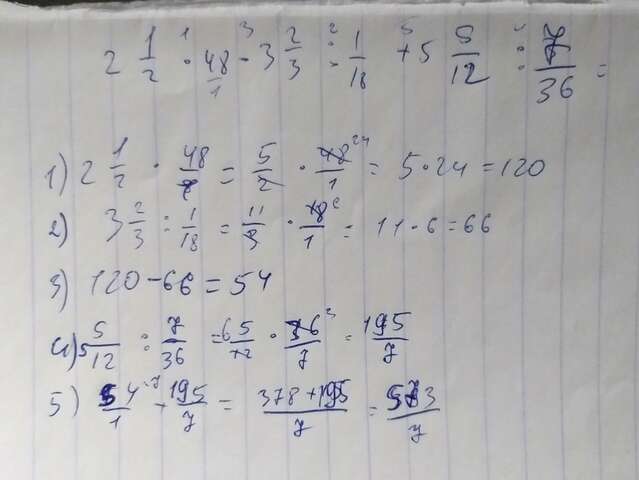 2 1/2 · 48/1 - 3 2/3 : 1/18 + 5 5/12 : 7/36 =
1) 2 1/2 · 48/1 = 5/2 · 48/1 = 5 · 24 = 120
2) 3 2/3 : 1/18 = 11/3 · 18/1 = 11 · 6 = 66
3) 120 - 66 = 54
4) 5 5/12 : 7/36 = 65/12 · 36/7 = 195/7
5) 54/1 + 195/7 = 378 + 195/7 = 573/7